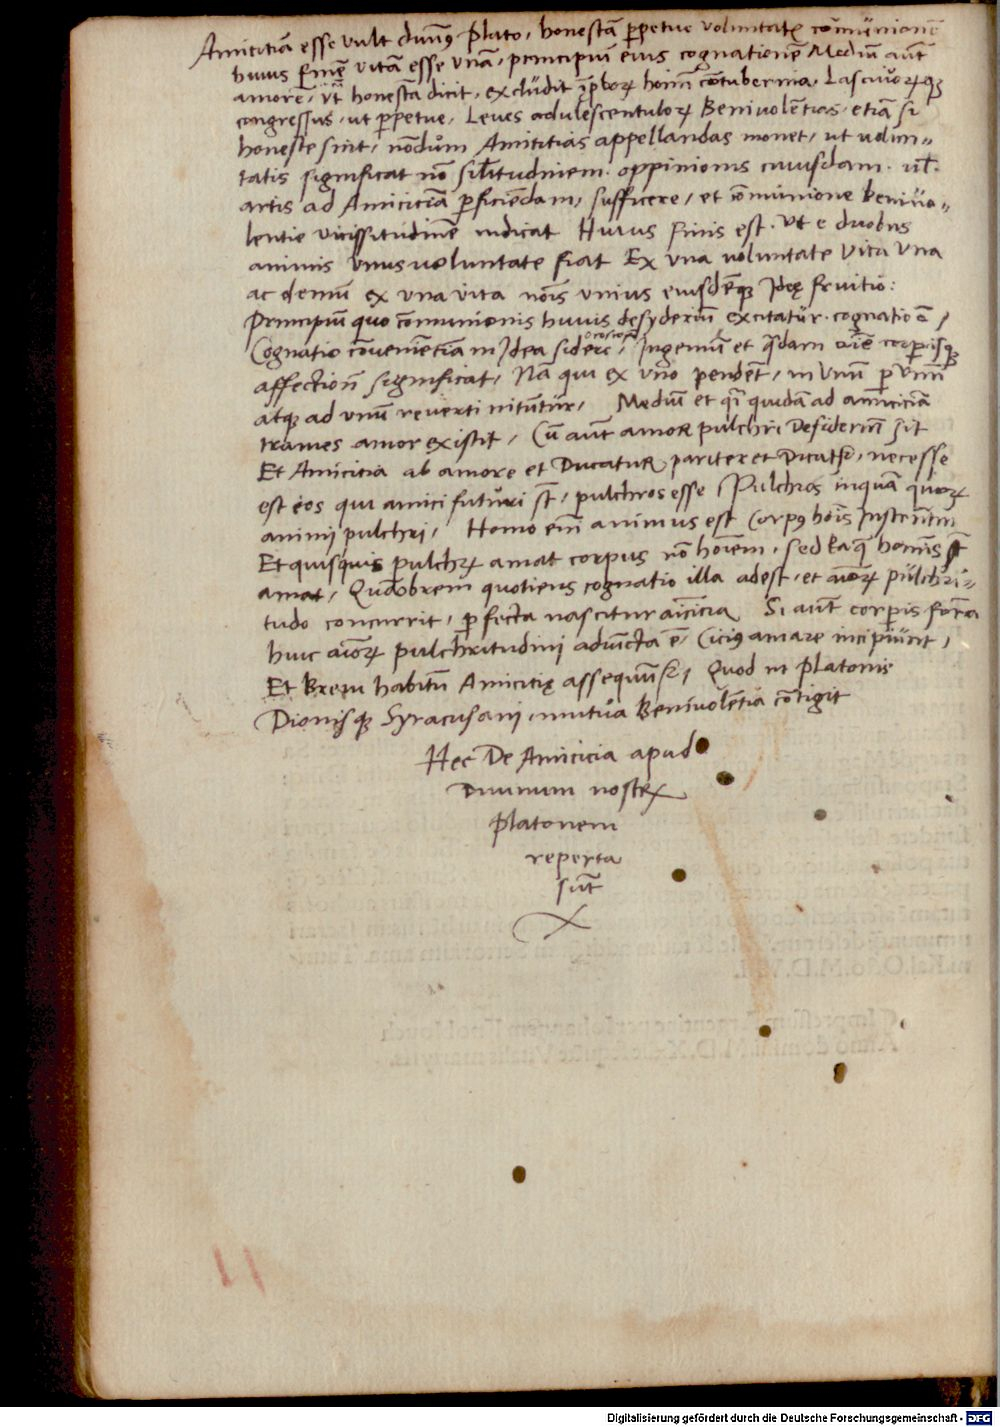 Amicitiā esse vult diuin9 Plato, honestā ꝑpetue voluntatꝭ cōmunionē
huius Finē vitā esse vnā, principiū eius cognationē Mediū aūt
amorē, vt honestā dicit, excludit īproborꝝ hoīm cōtubernia, Lasciuorꝝqꝫ
congressus, ut ꝑpetue, Leues adulescentulorꝝ Beniuolētias, etiā si
honeste sint, nōdum Amititias appellandas monet, ut volun-
tatis significat nō similitudinem oppinionis cuiusdam. vl̄
artis ad Amiciciā ꝑficiēdam, sufficere, et cōmunione Beniuo-
lentie vicissitudinē indicat Huius Finis est. Vt e duobus
animis vnus voluntate fiat Ex vna voluntate vita vna
ac demū ex vna vita nōis vnius eiusdēqꝫ Ideę fruitio:
Principiū quo cōmunionis huius desyderiū excitatur. cognatio ē,
Cognatio cōuenientiā in Idea sidere, Ingeniū et q̄dam aīe corporisqꝫ
affectionē significat, Nā qui ex vno pendēt, in vnū ꝑ vnū
atqꝫ ad vnū reuerti nitūtur, Mediū et q̄i quidā ad amiciciā
trames amor existit, Cū aūt amor pulchri Desideriū sit
Et Amicicia ab amore et Ducatur pariter et Dicatur, necesse
est eos qui amici futuri st̄, pulchros esse Pulchros inquā quorꝝ
animi pulchri, Homo eīn animus est Corp9 hōis Instrumētū
Et quisquis pulchrꝝ amat corpus nō hoīem, sed ea q̄ hominis st̄
amat, Quāobrem quotiens cognatio illa adest, et aīorꝝ pulchri-
tudo concurrit, ꝑfecta nascitur amicicia Si aūt corporis forma
huic aīorꝝ pulchritudini adiūcta ē, Cici9 amare incipiunt,
Et Breui habitū Amicitię assequūtur, Quod in Platonis
Dionisqꝫ Syracusani, mutua Beniuolētia cōtigit
Hec De Amicicia apud
Diuinum nostrꝝ
Platonem
reperta
sūt
Digitalisierung gefördert durch die Deutsche Forschungsgemeinschaft - DFG